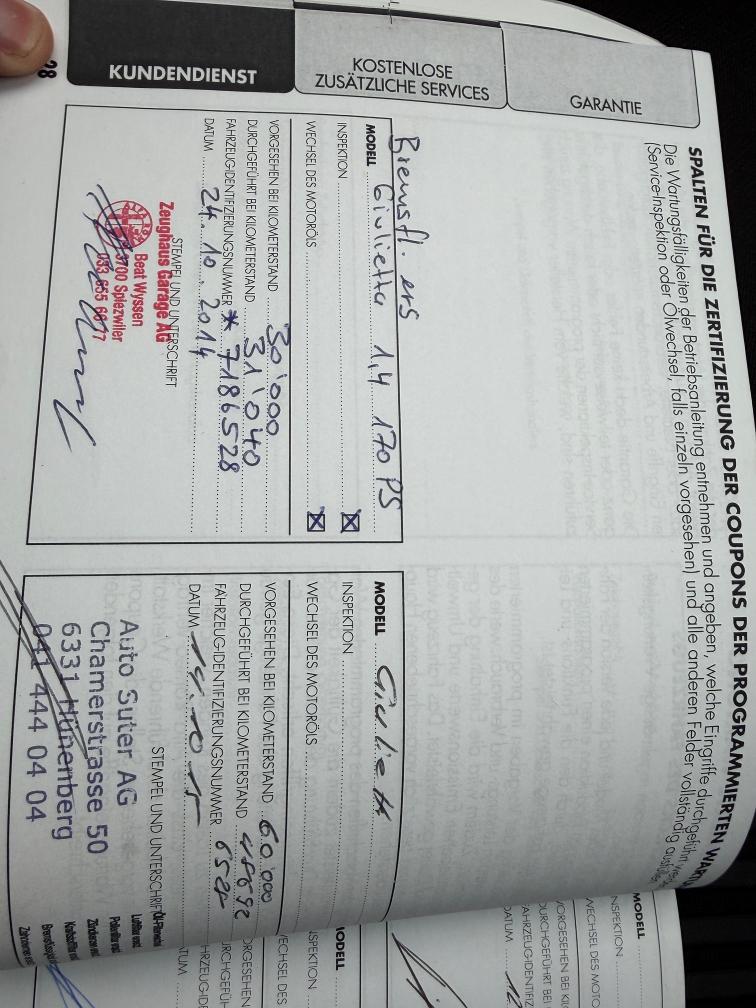 KUNDENDIENST
KOSTENLOSE
ZUSÄTZLICHE SERVICES
GARANTIE
28
SPALTEN FÜR DIE ZERTIFIZIERUNG DER COUPONS DER PROGRAMMIERTEN
Die Wartungsfälligkeiten der Betriebsanleitung entnehmen und angeben, welche Eingriffe durchgeführt
(Service-Inspektion oder Ölwechsel, falls einzeln vorgesehen) und alle anderen Felder vollständig
Bremsfl. ers
MODELL Giulietta 1,4 170 PS
INSPEKTION
WECHSEL DES MOTORÖLS
VORGESEHEN BEI KILOMETERSTAND 30'000
DURCHGEFÜHRT BEI KILOMETERSTAND 31'040
FAHRZEUG-IDENTIFIZIERUNGSNUMMER * 7186528
DATUM 24.10.2014
STEMPEL UND UNTERSCHRIFT
Zeughaus Garage AG
Beat Wyssen
3700 Spiezwiler
MODELL Giulietta
INSPEKTION
WECHSEL DES MOTORÖLS
VORGESEHEN BEI KILOMETERSTAND 60.000
DURCHGEFÜHRT BEI KILOMETERSTAND
FAHRZEUG-IDENTIFIZIERUNGSNUMMER
DATUM
STEMPEL UND UNTERSCHRIFT
Auto Suter AG
Chamerstrasse 50
6331 Hünenberg
041 444 04 04
MODELL
INSPEKTION
MODELL